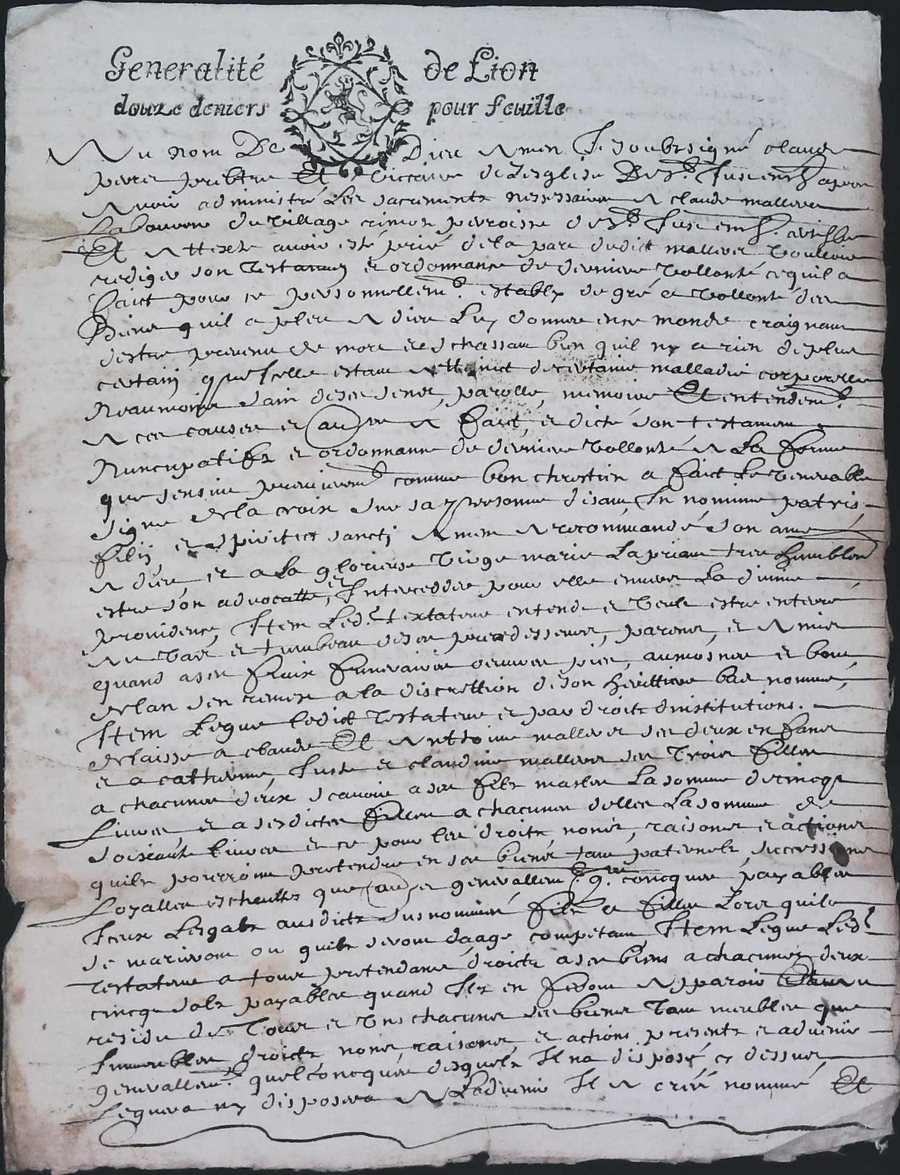 Generalité de Lion
douze deniers pour feuille
Au nom De Dieu Amen Je soubsigné claude
prebtre Et viccaire de Lesglise De st Just en apres
Avoir administré Les sacrements nessessaires A claude mallever
Laboureur du village parroisse de st Just en
Et Attexte avoir esté prié de la part dudict mallever voulloir
rediger son Testament et ordonnance de derniere vollonté ce quil a
faict pour ce personnellemt establi de gré et vollonté des
Biens quil a pleu A dieu Luy donner en ce monde craignant
destre prevenu de mort et schassant bien quil ny a rien de plus
certain que Icelle estant Attainct de certaine malladie corporelle
Neaumoins sain de ses sens, parolle, memoire Et entendemt
A ces causes et au A faict, et dicté son testament
Nuncupatif et ordonnance de derniere vollonté A La forme
que sensuit premieremt comme bon chrestien a faict Le venerable
signe de la croix sur sa personne disant In nomine patris
filij et spiritus sancti Amen A recommandé son ame
A dieu et a La glorieuse vierge marie La priant tres humblemt
estre son advocatte et Interceddre pour elle envers La divine
providence, Item Ledt textateur entend et veult estre enterré
Au vas et tumbeau de ses predesseseurs, parens, et Amis
quand a ses fraix funeraires œuvres pies, aumosnes et bout
de lan sen remest a la discrettion de son herittiere bas nommé,
Item Legue Ledict Testateur et par droict dinstitutions.
delaisse a claude Et Anthoine mallever ses deux enfans
et a catherine, Juste et claudine mallever ses trois filles
a chacun deux scavoir a ses filz masles La somme de cincq
Livres et a sesdictes filles a chacune delles La somme de
soixante livres et ce pour leur droictz noms, raisons et actions
quilz pourroint pretendre en ses biens tant paternelz successions
Loyalles escheuttes que generallemt qconcques payables
Iceux Legatz ausdictz susnommés filz et filles Lors quilz
se mariront ou quilz seront daage compettant Item Legue Ledt
Testateur a tous pretendants droictz a ses biens a chacun deux
cincq solz payables quand Ilz en feront Apparoir Et au
residu de Tous et Uns chacuns ses biens Tant meubles que
Immeubles droictz noms raisons et actions presents et advenir
generallemt quelconcques desquelz Il na disposé cy dessus
Leguera ny disposera A Ladvenir Il A créé nommé Et